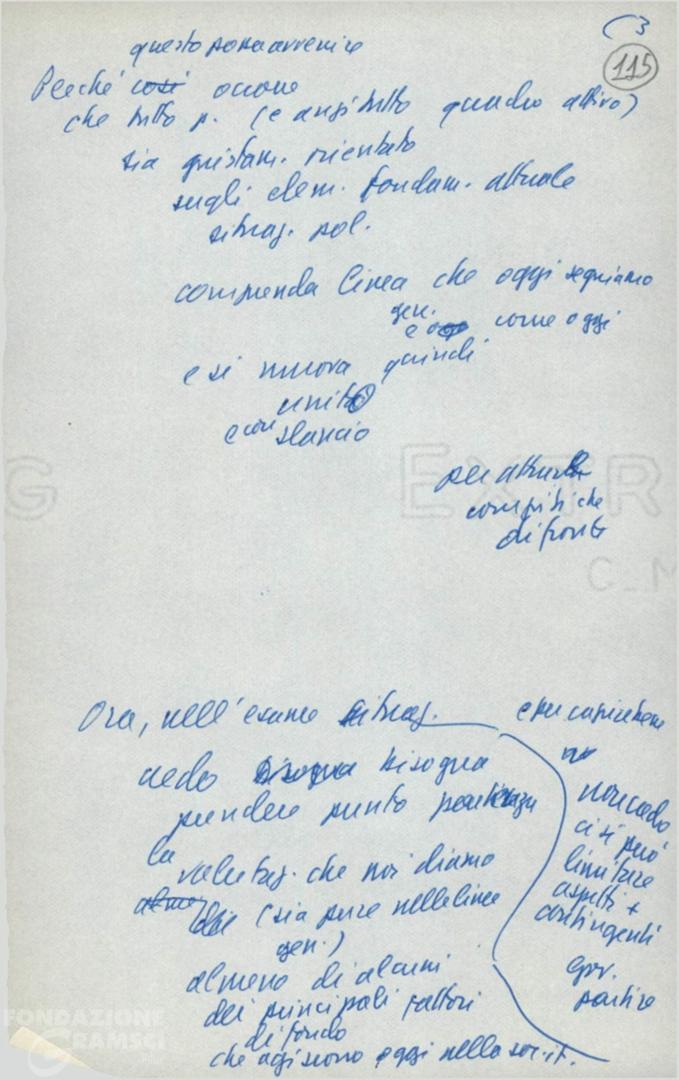 (3
115
questo possa avvenire
Perché così occorre
che tutto p. (e anzitutto quadro attivo)
sia giustam. orientato
sugli elem. fondam. attuale
situaz. pol.
comprenda linea che oggi seguiamo
gen.
e come oggi
e si muova quindi
unità
e con slancio
per attuare
compiti che
di fronte
Ora, nell'esame situaz.
credo bisogna bisogna
prendere punto partenza
la
valutaz. che noi diamo
almeno
(sia pure nelle linee
gen.)
almeno di alcuni
dei principali fattori
di fondo
che agiscono oggi nella soc. it.
e per capire bene
non credo
ci si può
limitare
aspetti +
contingenti
partire
EXTR
G
C_M
FONDAZIONE
GRAMSCI